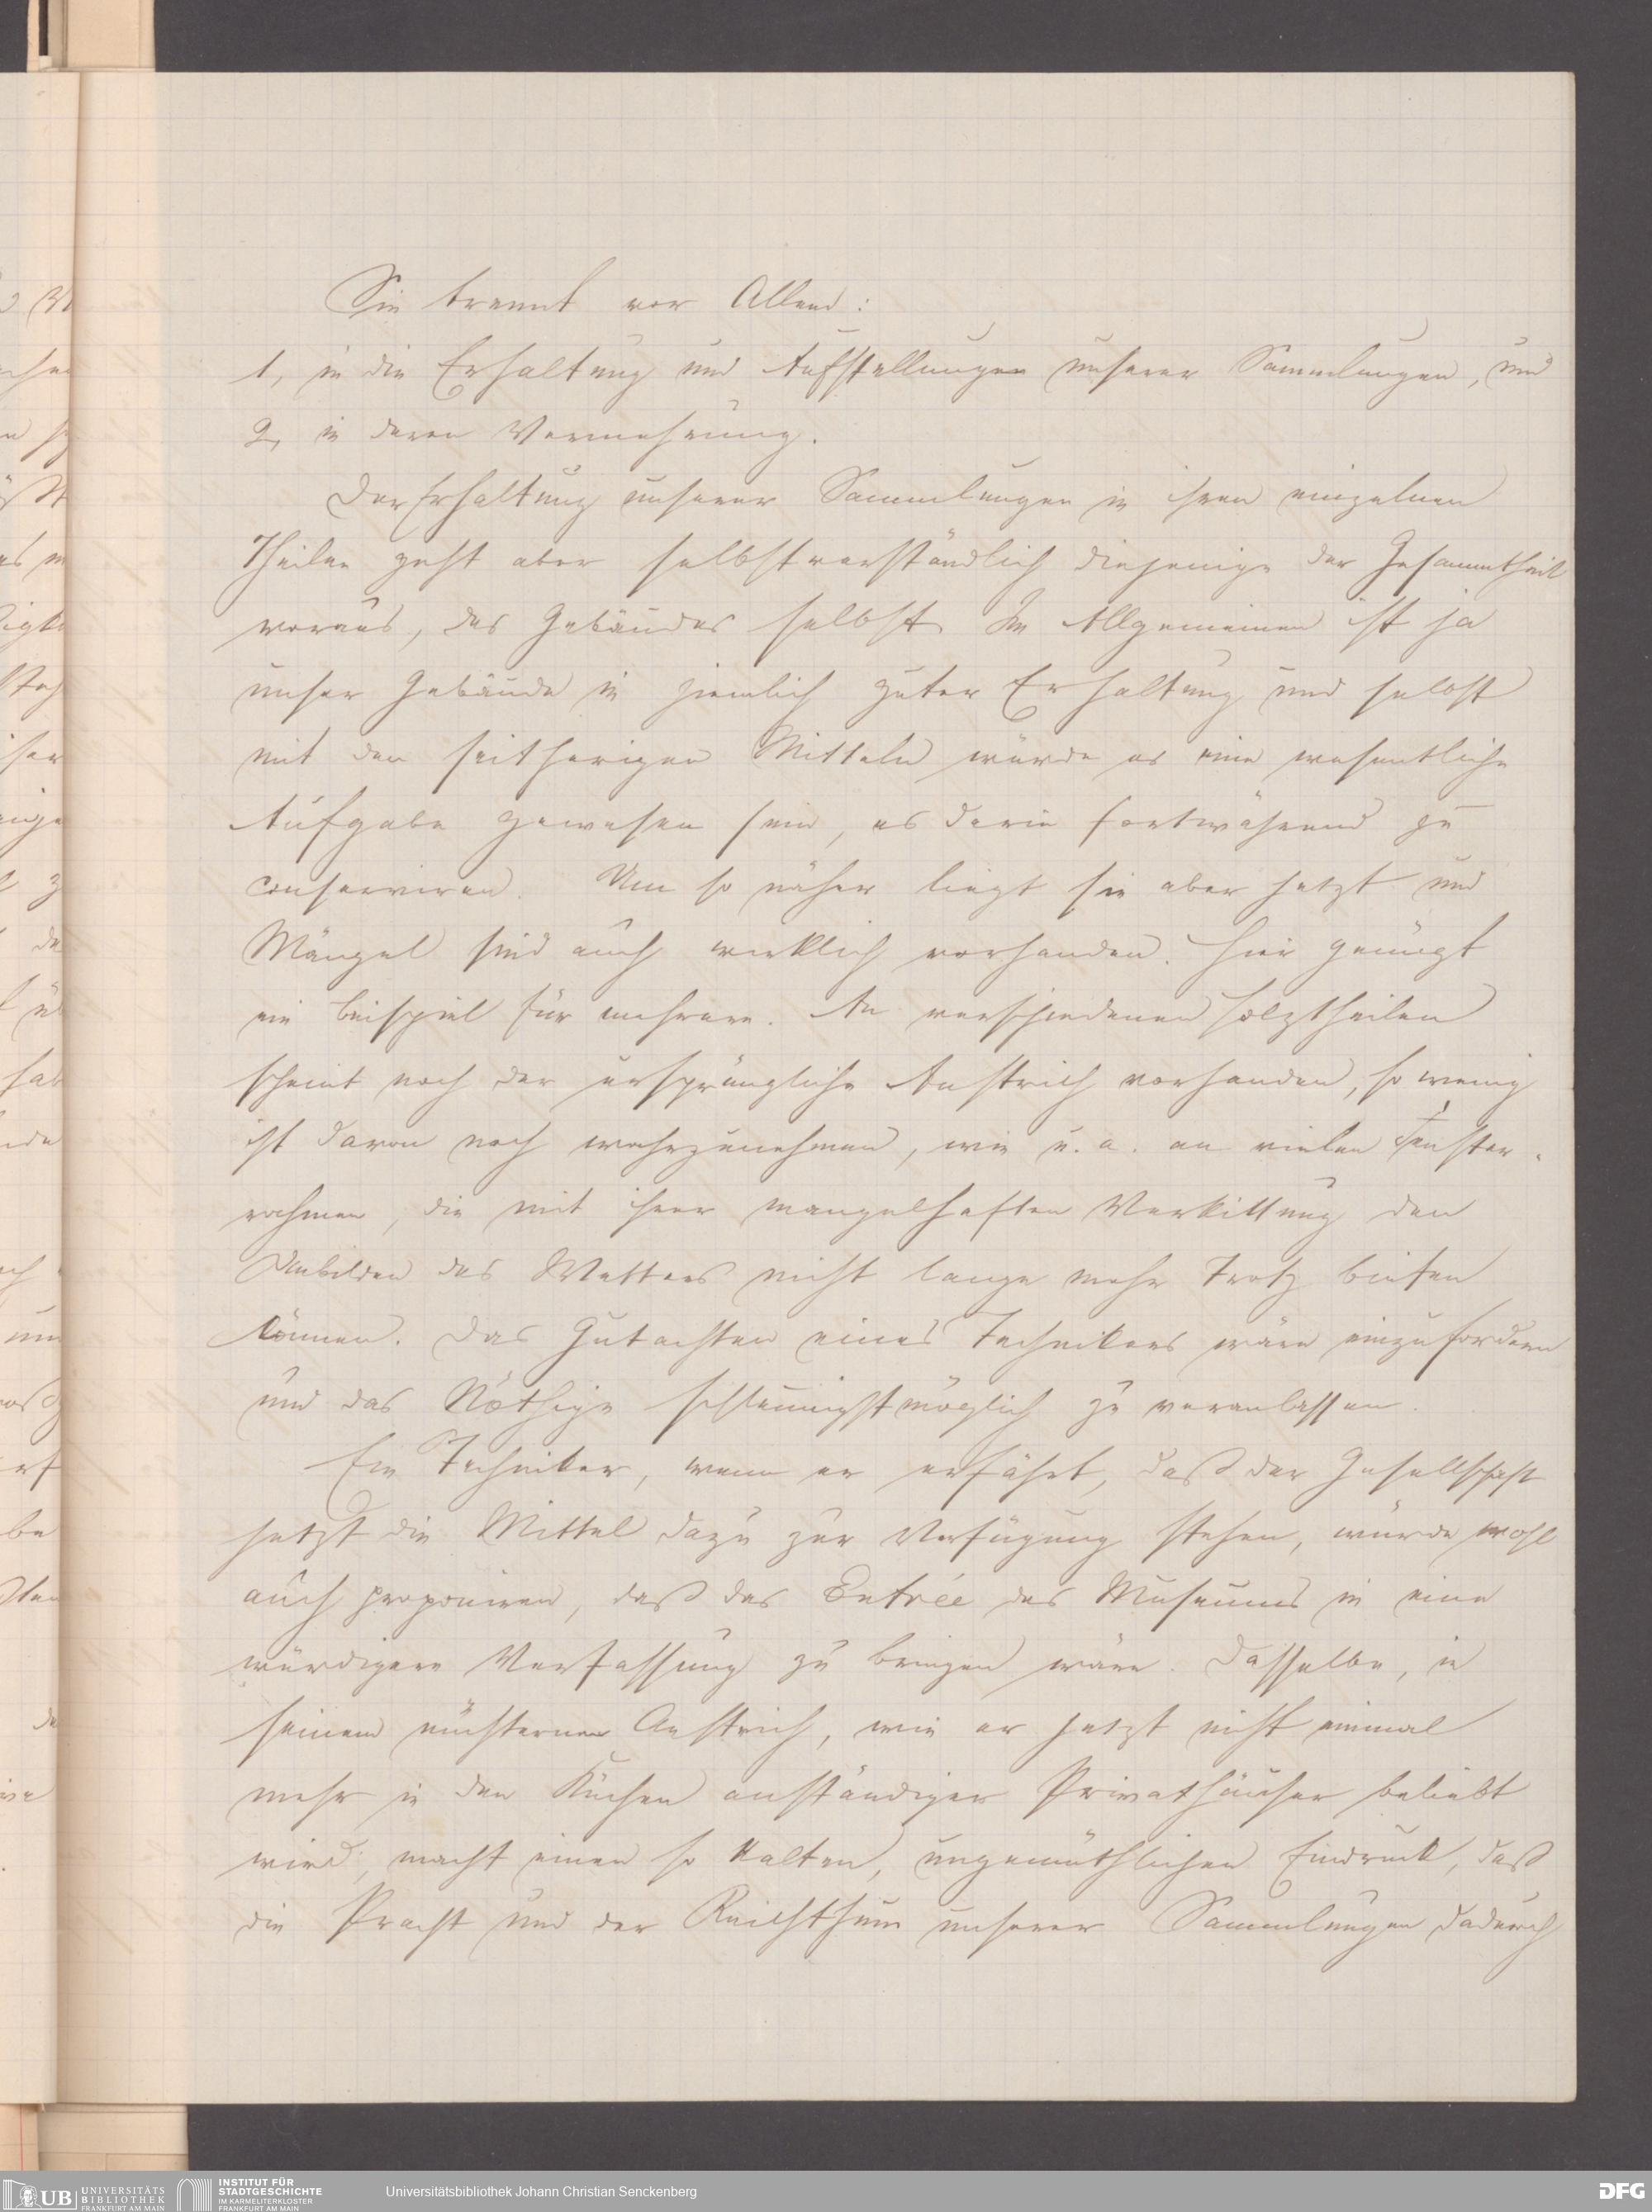 Sie trennt vor Allem:
1, in die Erhaltung und Aufstellungen unserer Sammlungen, und
2, in deren Vermehrung.
Der Erhaltung unserer Sammlungen in ihren einzelnen
Theilen geht aber selbstverständlich diejenige der Gesammtheit
voraus, des Gebäudes selbst. Im Allgemeinen ist ja
unser Gebäude in ziemlich guter Erhaltung und selbst
mit den seitherigen Mitteln würde es eine wesentliche
Aufgabe gewesen sein, es darin fortwährend zu
conserviren. Um so näher liegt sie aber jetzt und
Mängel sind auch wirklich vorhanden. Hier genügt
ein Beispiel für mehrere. An verschiedenen Holztheilen
scheint noch der ursprüngliche Anstrich vorhanden, so wenig
ist davon noch wahrzunehmen, wie u. a. an vielen Fenster-
rahmen, die mit ihrer mangelhaften Verkittung den
Unbilden des Wetters nicht lange mehr Trotz bieten
können. Das Gutachten eines Technikers wäre einzufordern
und das Nöthige schleunigstmöglich zu veranlassen.
Ein Techniker, wenn er erfährt, daß der Gesellschaft
jetzt die Mittel dazu zur Verfügung stehen, würde wohl
auch proponiren, daß das Entrée des Museums in eine
würdigere Verfassung zu bringen wäre. Dasselbe, in
seinem nüchternen Anstrich, wie er jetzt nicht einmal
mehr in den Küchen anständiger Privathäuser beliebt
wird, macht einen so kalten, ungemüthlichen Eindruck, daß
die Pracht und der Reichthum unserer Sammlungen dadurch
UB UNIVERSITÄTS BIBLIOTHEK FRANKFURT AM MAIN
INSTITUT FÜR STADTGESCHICHTE IM KARMELITERKLOSTER FRANKFURT AM MAIN
Universitätsbibliothek Johann Christian Senckenberg
DFG